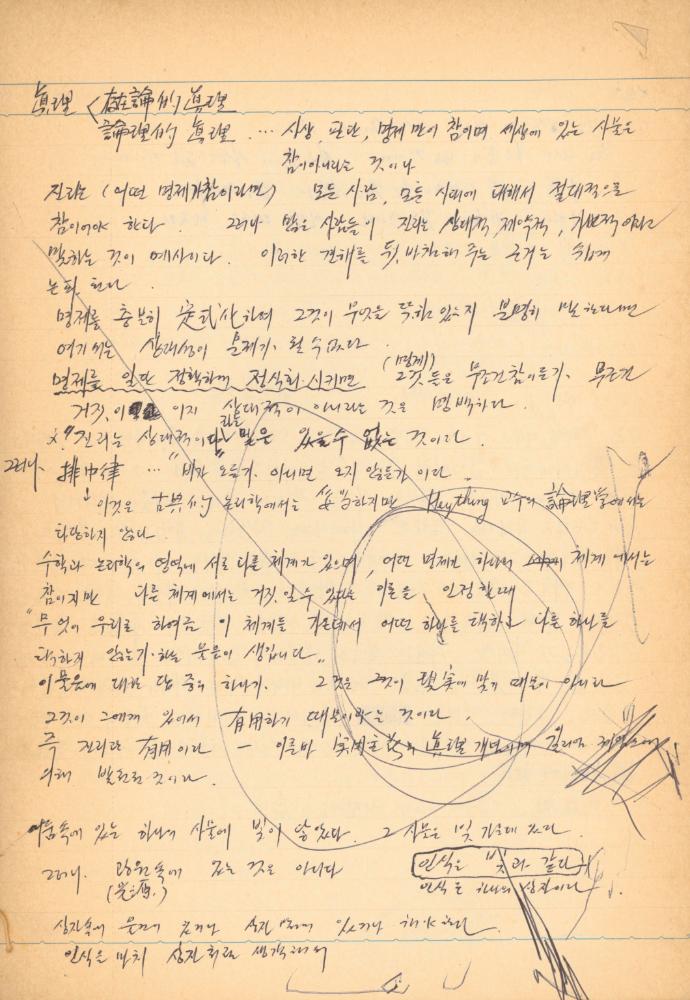 眞理 < 存在論的 眞理
論理的 眞理 .... 사상, 판단, 명제 만이 참이며 세상에 있는 사물은
참이아니라는 것이다
진리는 (어떤 명제가 참이라면) 모든 사람, 모든 시대에 대해서 절대적으로
참이어야 한다. 그러나 많은 사람들이 진리는 상대적, 제약적, 가변적 이라고
말하는 것이 예사이다. 이러한 견해를 뒷바침해 주는 근거는 쉽게
논파 된다.
명제를 충분히 定式化하여 그것이 무엇을 뜻하고 있는지 분명히 말한다면
여기서는 상대성이 문제가 될 수 없다.
명제를 일단 정확하게 정식화 시키면 (명제) 그것들은 무조건 참이든가, 무조건
거짓이 이지 상대적이 아니라는 것은 명백하다.
"진리는 상대적이다"라는 말은 있을 수 없는 것이다.
그러나 排中律 ... "비가 오든가, 아니면 오지 않든가 이다"
이것은 古典的 논리학에서는 妥当하지만 Heything 교수의 論理学에서는
타당하지 않다.
수학과 논리학의 영역에 서로 다른 체계가 있으며, 어떤 명제가 하나의 체계에서는
참이지만 다른 체계에서는 거짓일 수 있다는 이론을 인정할때
"무엇이 우리로 하여금 이 체계들 가운데서 어떤 하나를 택하고 다른 하나를
택하지 않는가 하는 물음이 생깁니다"
이 물음에 대한 답 중의 하나가, 그것은 그것이 現実에 맞기 때문이 아니라
그것이 그에게 있어서 有用하기 때문이라는 것이다.
즉 진리란 有用이다 — 이른바 実用主義의 眞理 개념이며 윌리엄 제임스에
의해 발전된 것이다.
어둠속에 있는 하나의 사물에 빛이 닿았다. 그 사물은 빛 가운데 있다.
그러나, 광원속에 있는 것은 아니다 인식은 빛과 같다
(光源.) 인식은 하나의 상자이다.
상자속에 문제가 있거나 상자 밖에 있거나 해야 한다.
인식을 마치 상자처럼 생각해서